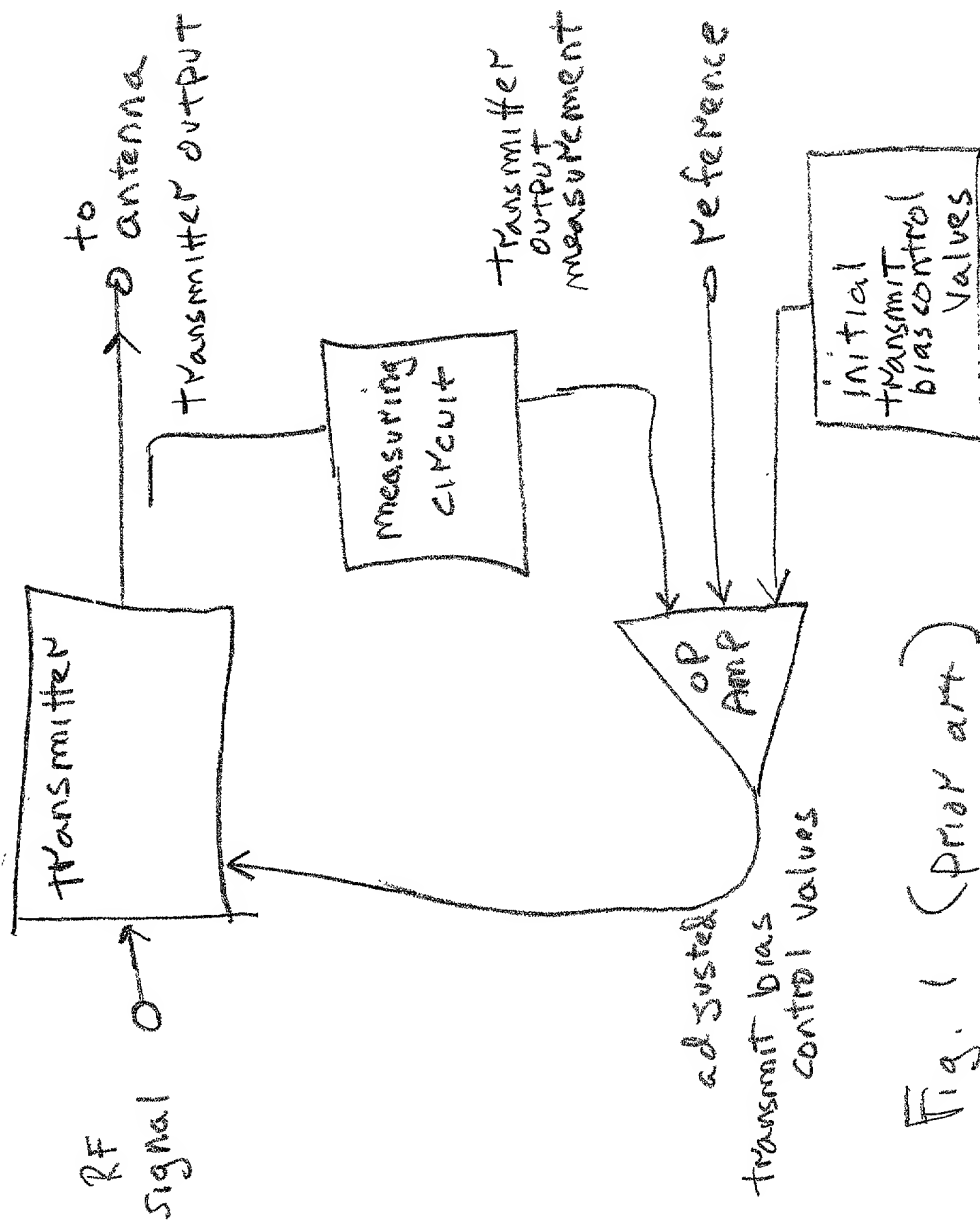 RF
signal
transmitter
to
antenna
transmitter output
measuring
circuit
transmitter
output
measurement
reference
OP
AMP
initial
transmit
bias control
values
adjusted
transmit bias
control values
Fig. 1 (prior art)